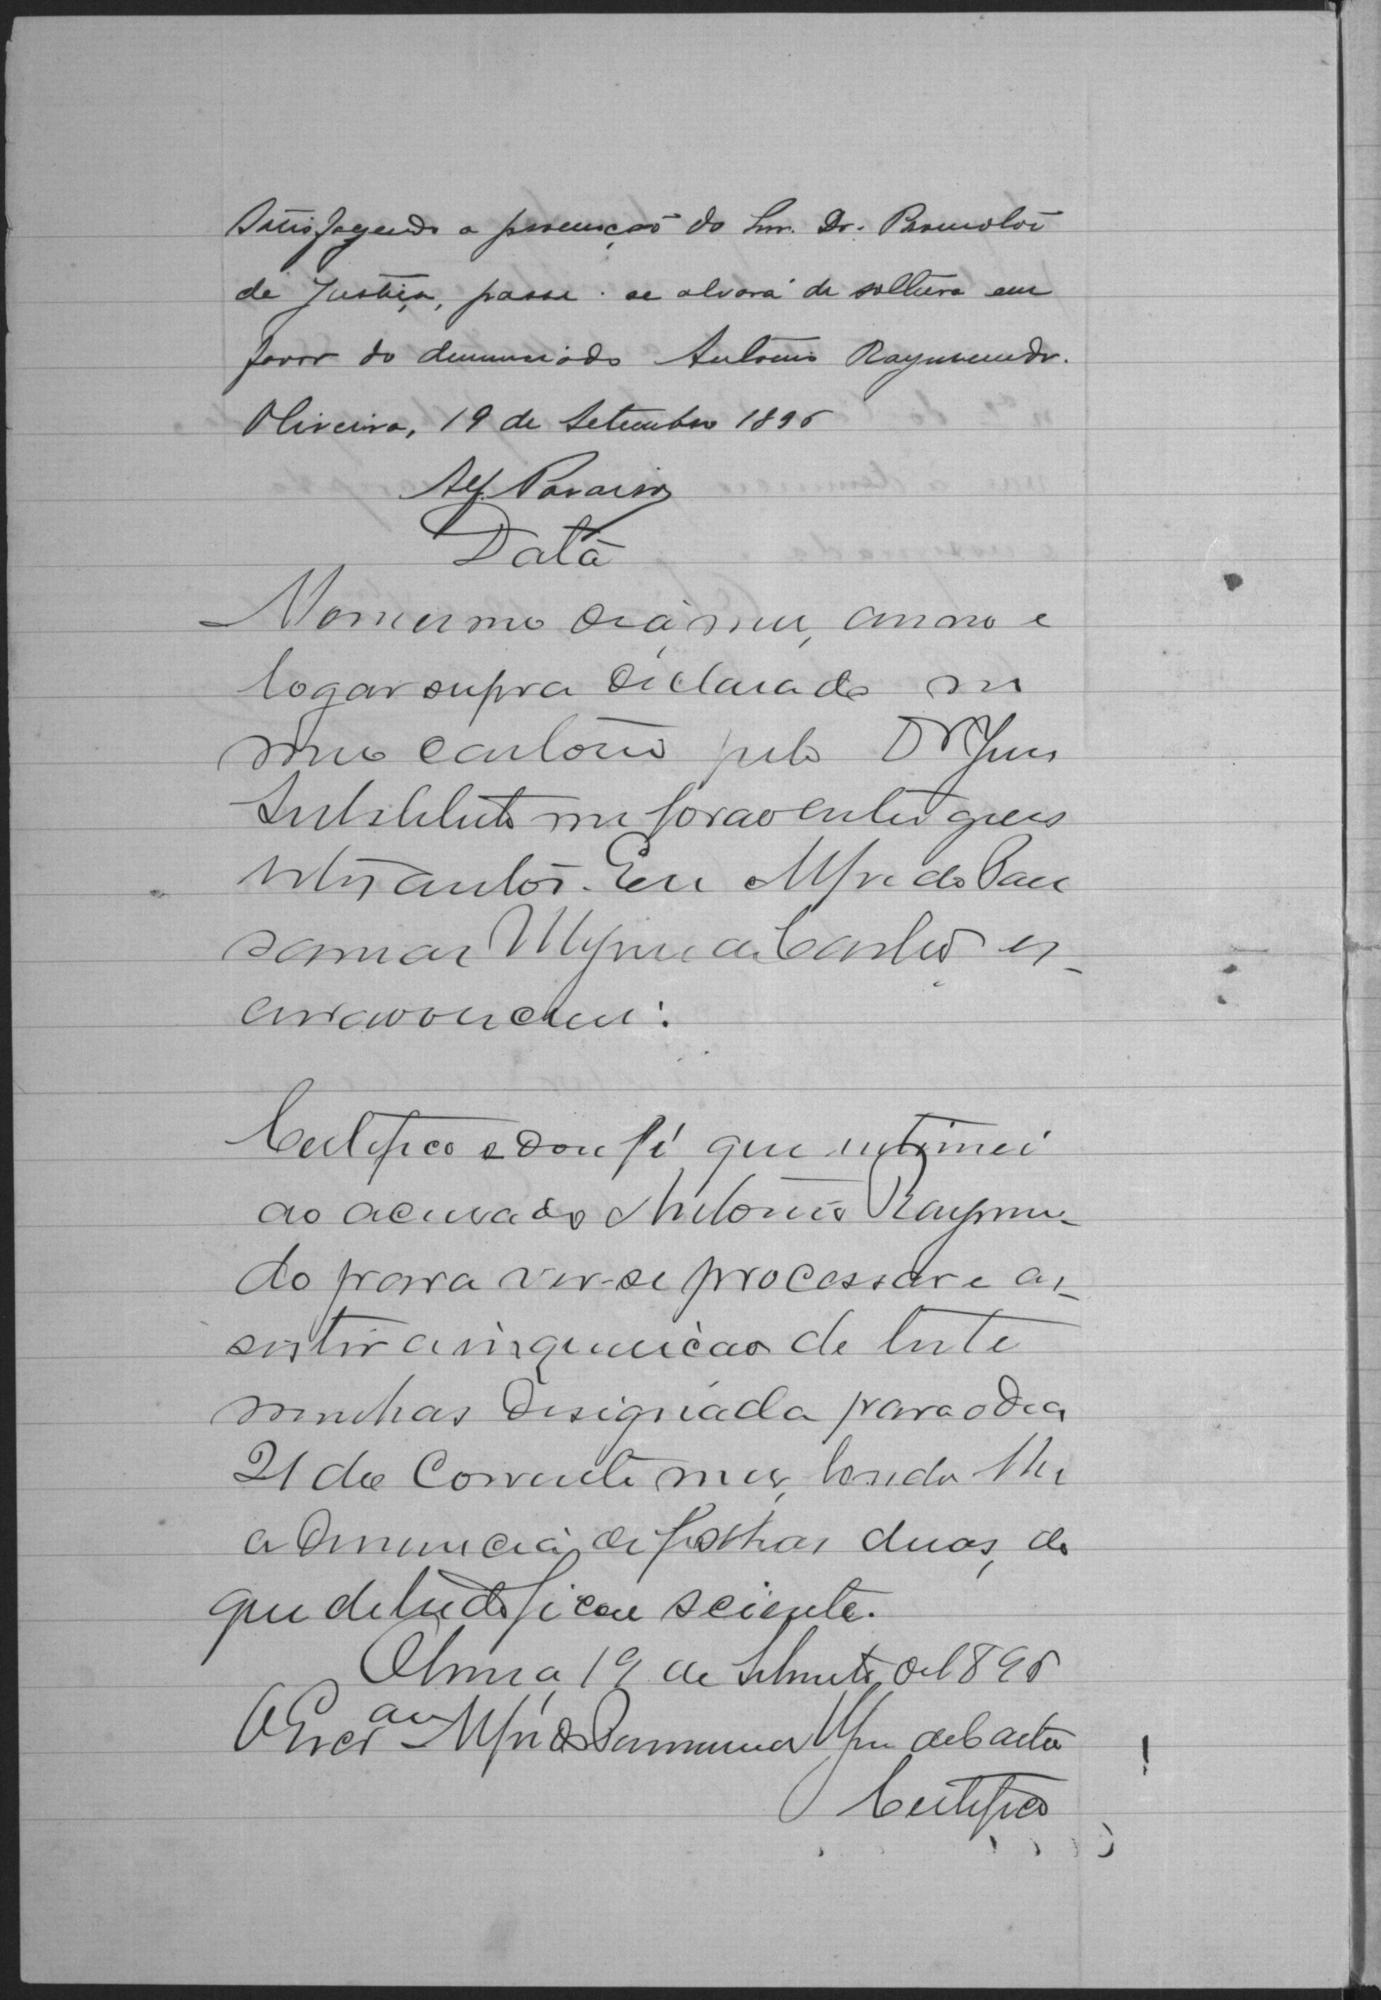 Satisfazendo a promoção do Snr. Dr. Promotor
de Justiça, passe-se alvará de soltura em
favor do denunciado Antonio Raymundo.
Oliveira, 19 de Setembro 1896
Data
No mesmo dia, mez, anno e
logar supra declarado em
meu cartorio pelo Dr Juiz
Substituto me forão entregues
estes autos. Eu Alfredo
de Castro es-
crivão o escrevi.
Certifico e dou fé que intimei
ao accusado Antonio Raymun-
do para ver-se processar e as-
sistir a inquirição de teste
munhas designada para o dia
21 do corrente mez, lendo-lhe
a denuncia de folhas duas, do
que de tudo ficou sciente.
Olivra 19 de Setembro de 1896
O Escrão Alfredo de Castro
Certifico